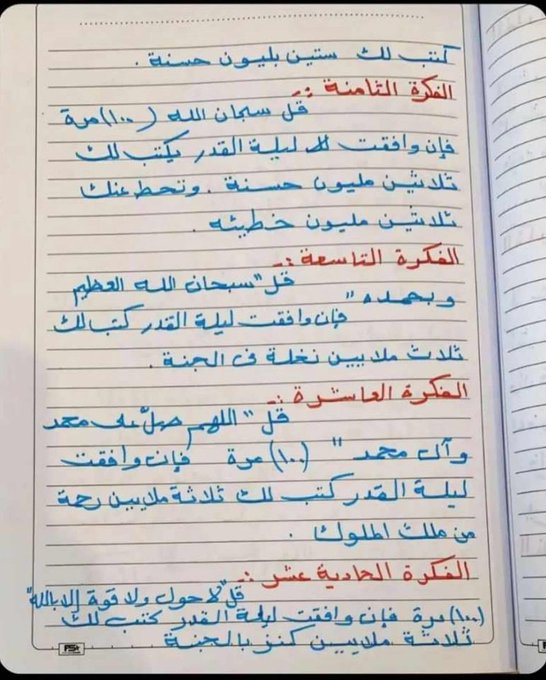 كتب لك ستين بليون حسنة .
الفكرة الثامنة :-
قل سبحان الله (١٠٠) مرة
فإن وافقت لك ليلة القدر يكتب لك
ثلاثين مليون حسنة . وتحط عنك
ثلاثين مليون خطيئه .
الفكرة التاسعة :-
قل "سبحان الله العظيم
وبحمده" فإن وافقت ليلة القدر كتب لك
ثلاث ملايين نخلة فى الجنة .
الفكرة العاشرة :-
قل "اللهم صلّ على محمد
وآل محمد" (١٠٠) مرة فإن وافقت
ليلة القدر كتب لك ثلاثة ملايين رحمة
من ملك الملوك .
الفكرة الحادية عشر :-
قل "لا حول ولا قوة إلا بالله"
(١٠٠) مرة فإن وافقت ليلة القدر كتب لك
ثلاثة ملايين كنز بالجنة